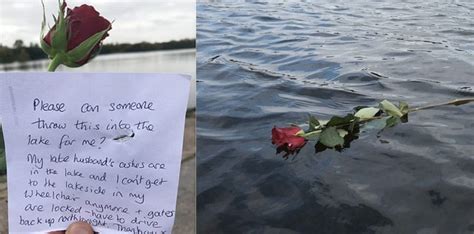 Please can someone
throw this into the
lake for me?
My late husband's ashes are
in the lake and I can't get
to the lakeside in my
wheelchair anymore + gates
are locked - have to drive
back up north tonight. Thankyou x